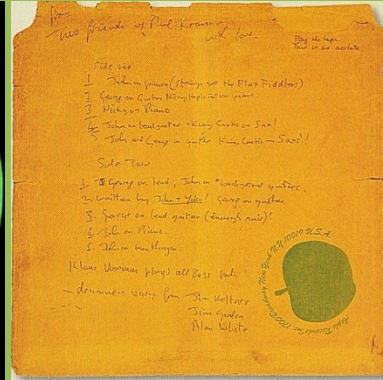 for
Two friends of Phil
with love.
Play the tape.
This is an acetate
Side one
1 John on piano (strings are the Flux Fiddlers)
2 George on Guitar Nicky Hopkins on piano
3 Nicky on Piano
4 John on lead guitar - King Curtis on Sax!
5 John and George on guitar King Curtis - Sax!!
Side Two
1 George on lead, John on background guitar.
2. written by John + Yoko! George on guitar.
3. George on lead guitar (enough said)!
4. John on Piano.
5. John on
Klaus Voorman plays all Bass
drummers vary from Jim Keltner
Jim Gordon
Alan White
Apple Records Inc. 1700 Broadway New York N.Y. 10019 U.S.A.